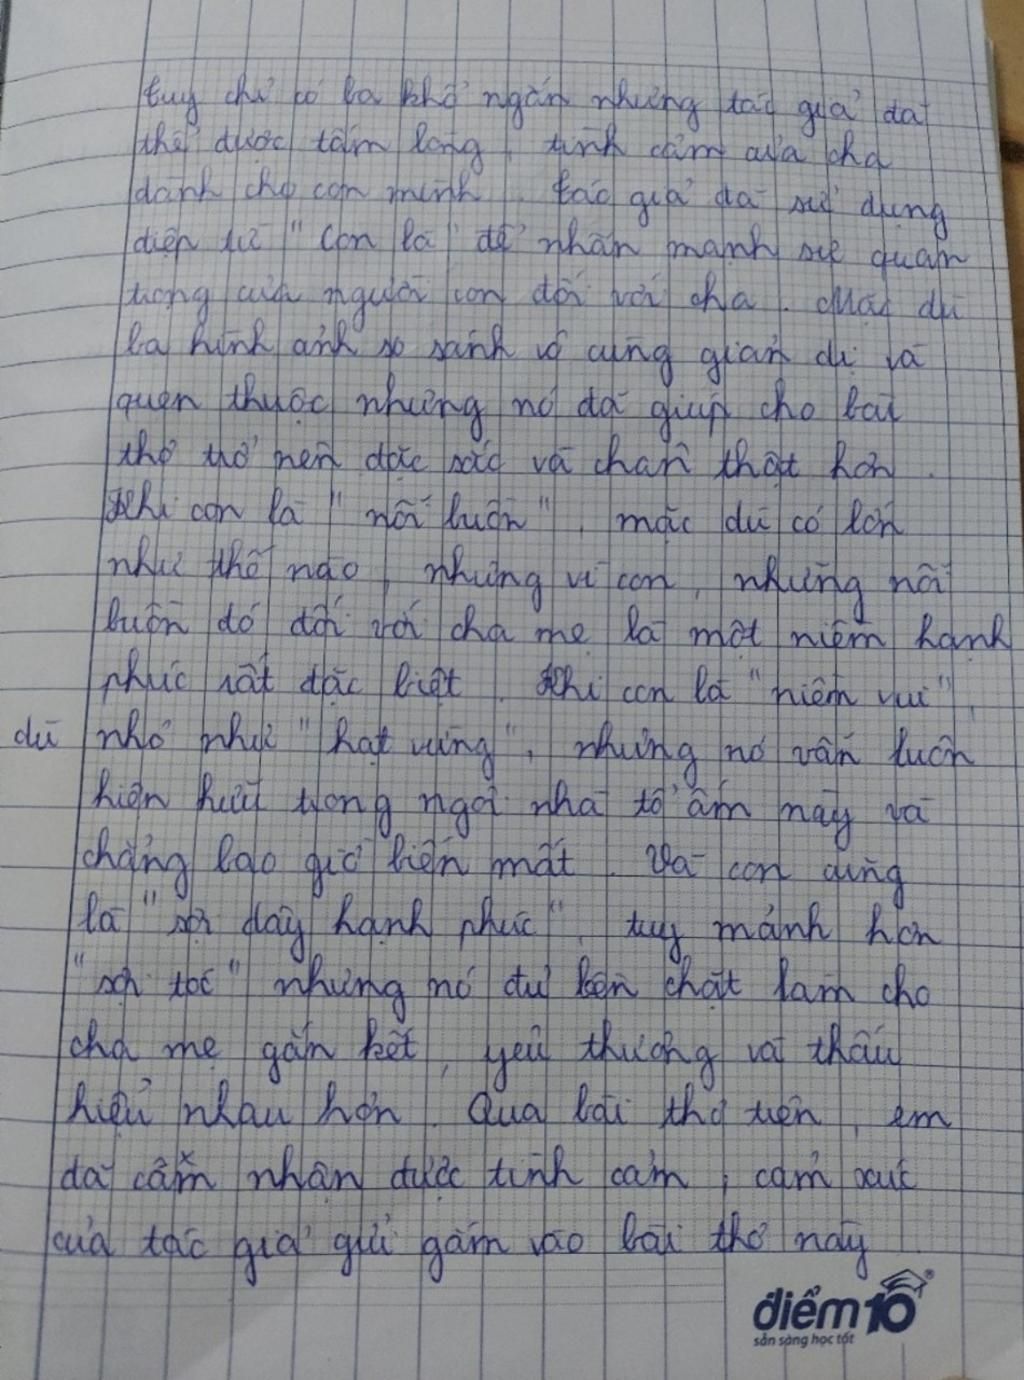 tuy chỉ có ba khổ ngắn nhưng tác giả đã
thể được tấm lòng, tình cảm của cha
dành cho con mình. tác giả đã sử dụng
điệp từ "con là" để nhấn mạnh sự quan
trọng của người con đối với cha. Mặc dù
ba hình ảnh so sánh vô cùng giản dị và
quen thuộc nhưng nó đã giúp cho bài
thơ trở nên đặc sắc và chân thật hơn.
Khi con là "nỗi buồn", mặc dù có lớn
như thế nào, nhưng vì con, những nỗi
buồn đó đối với cha mẹ là một niềm hạnh
phúc rất đặc biệt. Khi con là "niềm vui",
dù nhỏ như "hạt vừng", nhưng nó vẫn luôn
hiện hữu trong ngôi nhà tổ ấm này và
chẳng bao giờ biến mất. Và con cũng
là "sợi dây hạnh phúc", tuy mảnh hơn
"sợi tóc" nhưng nó đủ bền chặt làm cho
cha mẹ gắn kết, yêu thương và thấu
hiểu nhau hơn. Qua bài thơ trên, em
đã cảm nhận được tình cảm, cảm xúc
của tác giả gửi gắm vào bài thơ này
điểm10
sẵn sàng học tốt